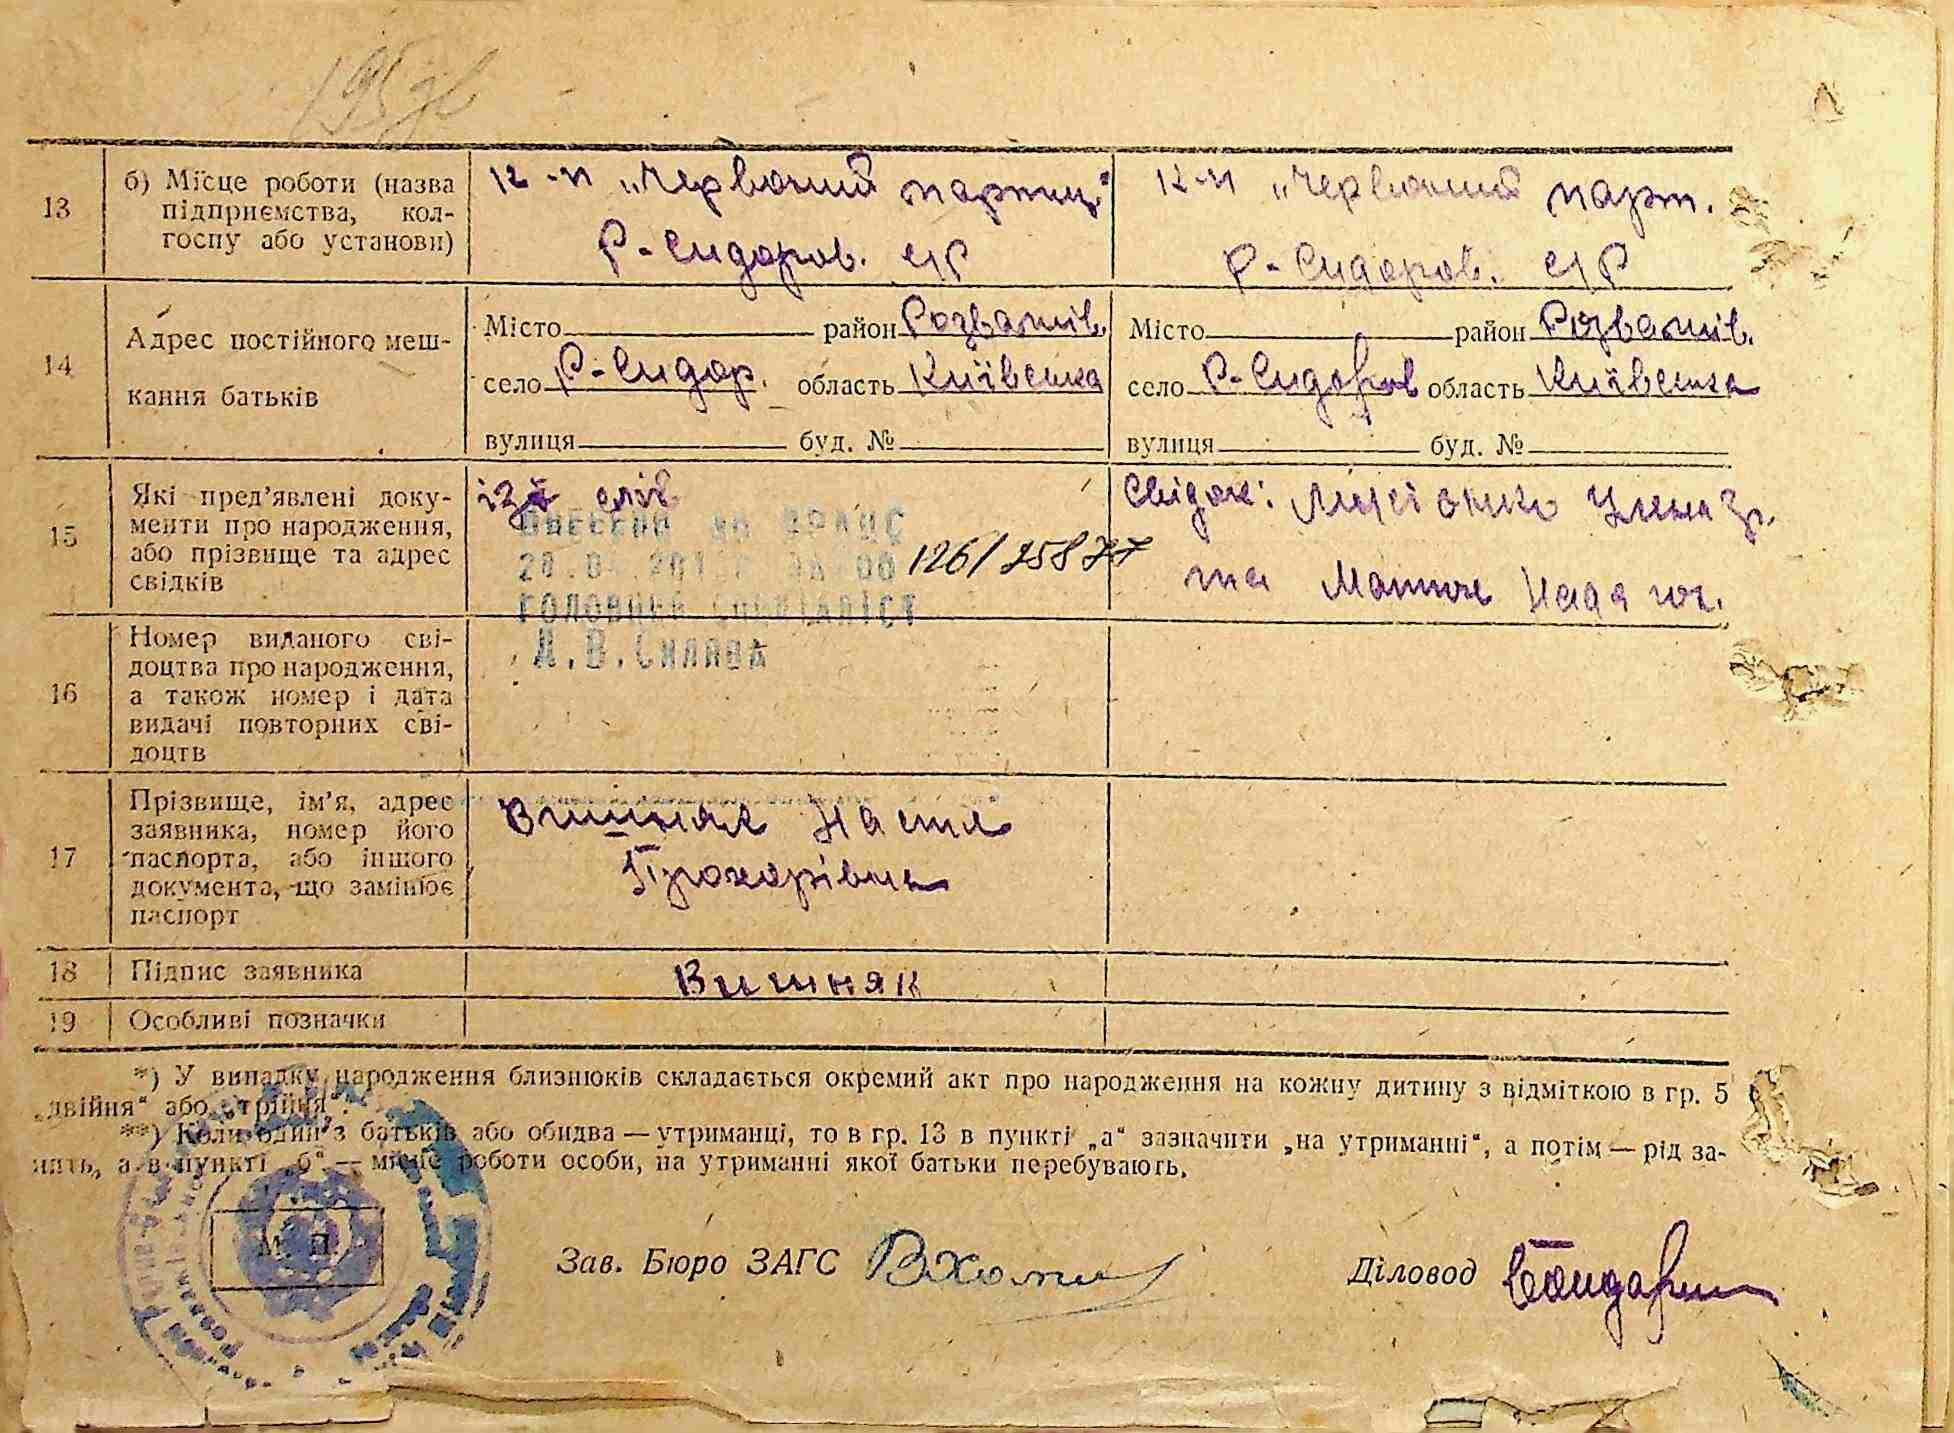 13
б) Місце роботи (назва
підприємства, кол-
госпу або установи)
к-п „Червоний партиз."
Р-Сидоров. с/р
к-п „Червоний парт.
Р-Сидоров. с/р
14
Адрес постійного меш-
кання батьків
Місто район Розважів.
село Р-Сидор. область Київська
вулиця буд. №
Місто район Розважів.
село Р-Сидоров область Київська
вулиця буд. №
15
Які пред'явлені доку-
менти про народження,
або прізвище та адрес
свідків
із слів
Внесено до ДРАЦС
126/25877
Головний спеціаліст
Свідок:
та Надя
16
Номер виданого сві-
доцтва про народження,
а також номер і дата
видачі повторних сві-
доцтв
17
Прізвище, ім'я, адрес
заявника, номер його
паспорта, або іншого
документа, що замінює
паспорт
Вишняк Настя
Прохорівна
18
Підпис заявника
Вишняк
19
Особливі позначки
*) У випадку народження близнюків складається окремий акт про народження на кожну дитину з відміткою в гр. 5
„двійня" або „трійня".
**) Коли один з батьків або обидва — утриманці, то в гр. 13 в пункті „а" зазначити „на утриманні", а потім — рід за-
нять, а в пункті „б" — місце роботи особи, на утриманні якої батьки перебувають.
М. П.
Зав. Бюро ЗАГС
Діловод